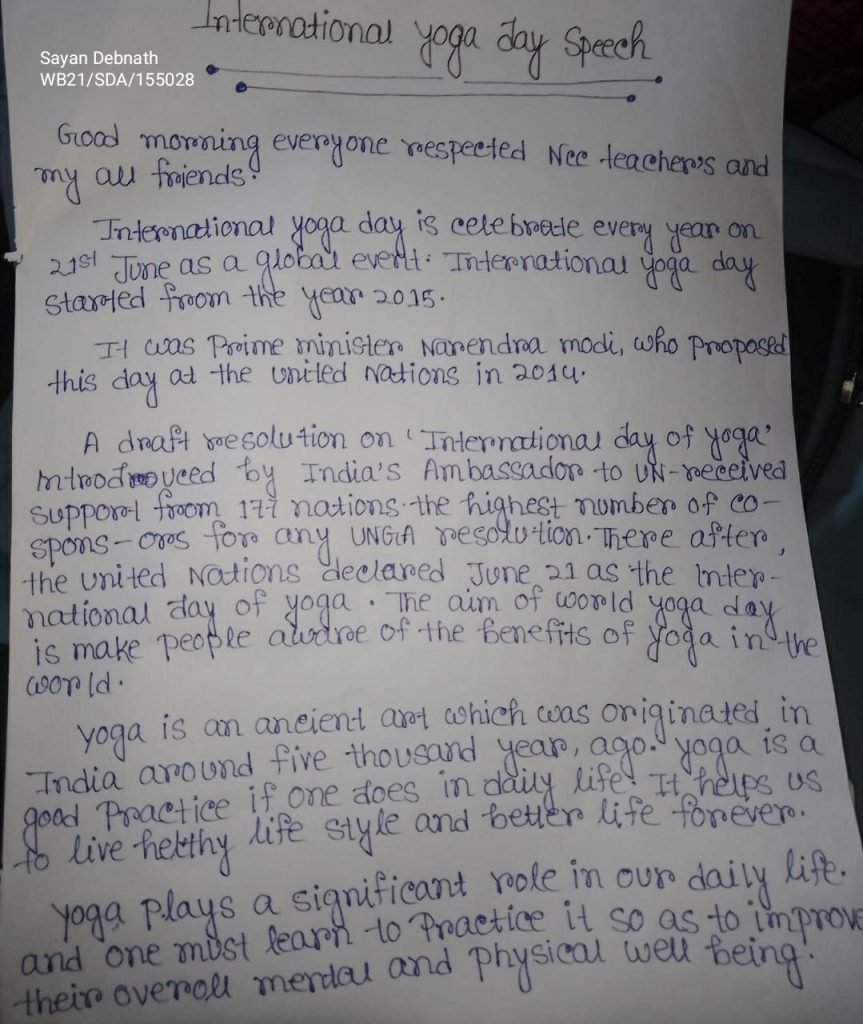 International yoga day Speech
Sayan Debnath
WB21/SDA/155028
Good morning everyone respected Ncc teacher's and
my all friends.
International yoga day is celebrate every year on
21st June as a global event. International yoga day
started from the year 2015.
It was Prime minister Narendra modi, who proposed
this day at the united Nations in 2014.
A draft resolution on 'International day of yoga'
introduced by India's Ambassador to UN-received
support from 177 nations. the highest number of co-
spons-ors for any UNGA resolution. There after,
the united Nations declared June 21 as the Inter-
national day of yoga. The aim of world yoga day
is make people aware of the benefits of yoga in the
world.
yoga is an ancient art which was originated in
India around five thousand year, ago. yoga is a
good Practice if one does in daily life. It helps us
to live helthy life style and better life forever.
yoga plays a significant role in our daily life.
and one must learn to Practice it so as to improve
their overall mental and physical well being.